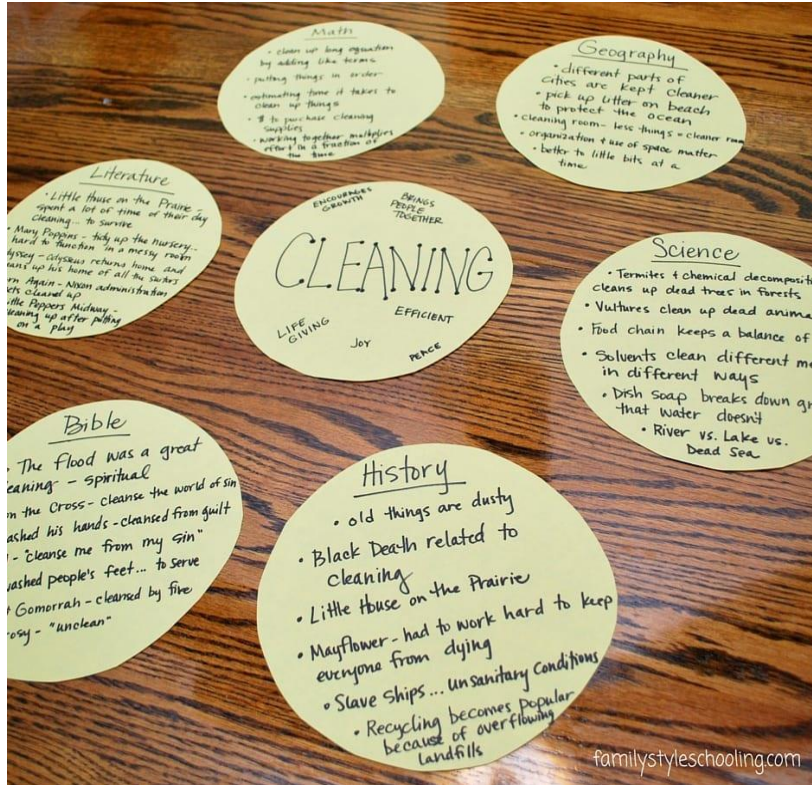 Math
• clean up long equation
by adding like terms
• putting things in order
• estimating time it takes to
clean up things
• $ to purchase cleaning
supplies
• working together multiplies
effort in a fraction of
the time
Geography
• different parts of
cities are kept cleaner
• pick up litter on beach
to protect the ocean
• cleaning room - less things = cleaner room
• organization + use of space matter
• better to little bits at a
time
Literature
• Little House on the Prairie -
spent a lot of time of their day
cleaning... to survive
Mary Poppins - tidy up the nursery...
hard to function in a messy room
dyssey - Odysseus returns home and
eans up his home of all the suitors
rn Again - Nixon administration
cts cleaned up
ittle Peppers Midway -
leaning up after putting
on a play
ENCOURAGES
GROWTH
BRINGS
PEOPLE
TOGETHER
CLEANING
LIFE
GIVING
JOY
EFFICIENT
PEACE
Science
• Termites + chemical decompositi
cleans up dead trees in forests
• Vultures clean up dead anima
• Food chain keeps a balance of
• Solvents clean different me
in different ways
• Dish soap breaks down gr
that water doesn't
• River vs. Lake vs.
Dead Sea
Bible
• The flood was a great
eaning - spiritual
n the Cross - cleanse the world of sin
ashed his hands - cleansed from guilt
- "cleanse me from my sin"
washed people's feet... to serve
Gomorrah - cleansed by fire
rosy - "unclean"
History
• old things are dusty
• Black Death related to
cleaning
• Little House on the Prairie
• Mayflower - had to work hard to keep
everyone from dying
• Slave Ships... unsanitary Conditions
• Recycling becomes popular
because of overflowing
landfills
familystyleschooling.com